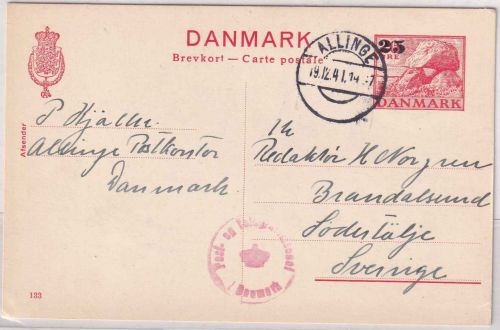 DANMARK
Brevkort — Carte postale
ALLINGE
19.12.41.14-17
25
ØRE
DANMARK
Afsender
P Hjälm.
Allinge Postkontor
Danmark.
Redaktør H Norgren
Brandalsund
Södestälje
Sverige
Post- og Telegrafvæsenet
i Danmark
133